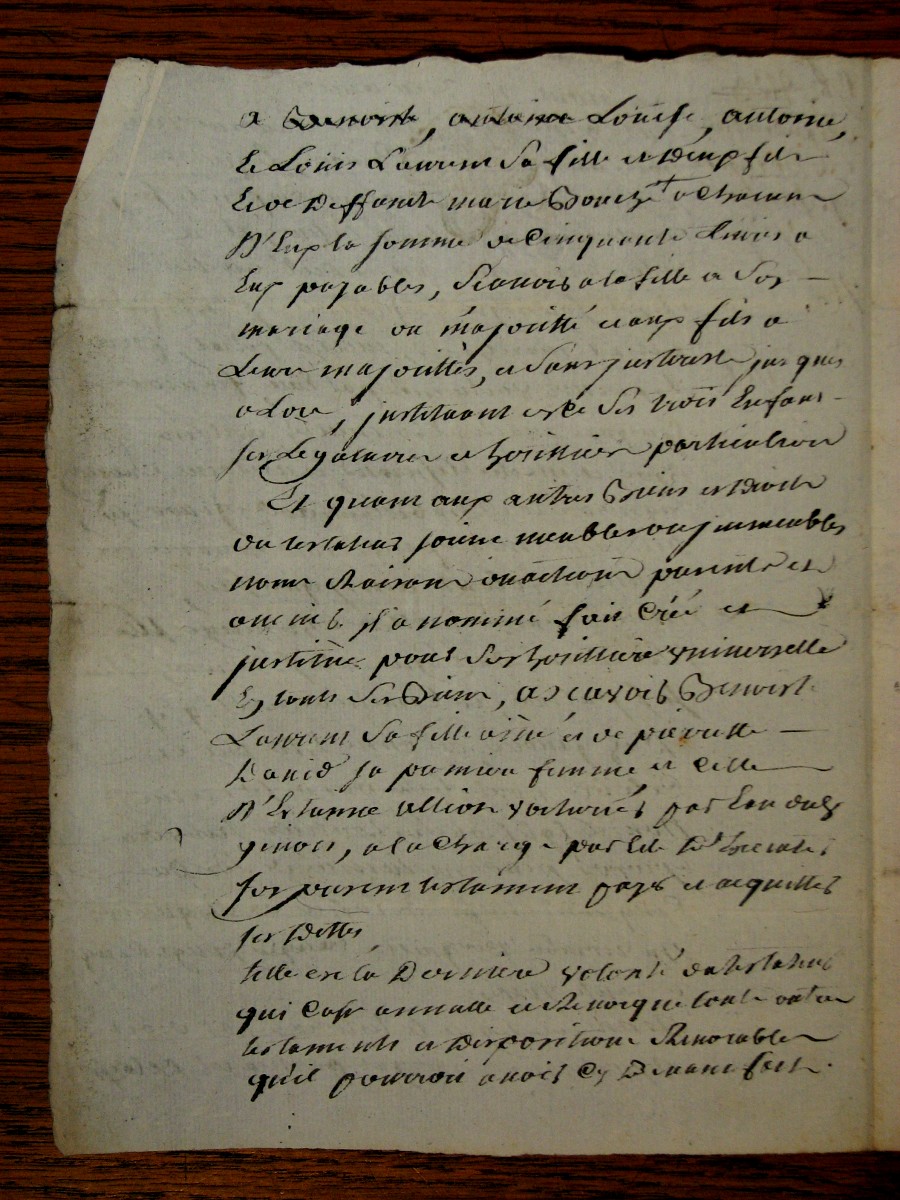 a Benoiste, antoine Loüise, antoine,
Et Loüis Laurent sa fille et deux fils
Et de deffunte marie Bouché + a Chacun
D'Eux la somme de Cinquante Livres a
Eux payables, scavoir a la fille a son
mariage ou majoritté et aux fils a
Leurs majorittés, et sans jnterest jusques
a Lors, jnstituant ses trois Enfans
ses Légataires et heritiers particuliers
Et quant aux autres Biens et Droits
du testateur soient meubles ou jmmeubles
noms Raisons ou actions presents et
avenirs jl a nommé fait Créé et
jnstitue pour son herittiere vniverselle
En touts ses Biens, a scavoir Benoiste
Laurent sa fille ainé et de pierrette
David sa premiere femme et Celle
D'Estienne allion voiturier par Eau dudit
givors, a la Charge par elle D'Executer
son present testament payer et acquitter
ses Dettes
telle est la Derniere volonté du testateur
qui Casse annulle et Revoque tout autre
testaments et Dispositions Revocables
qu'il pourroit avoir Cy Devant fait.